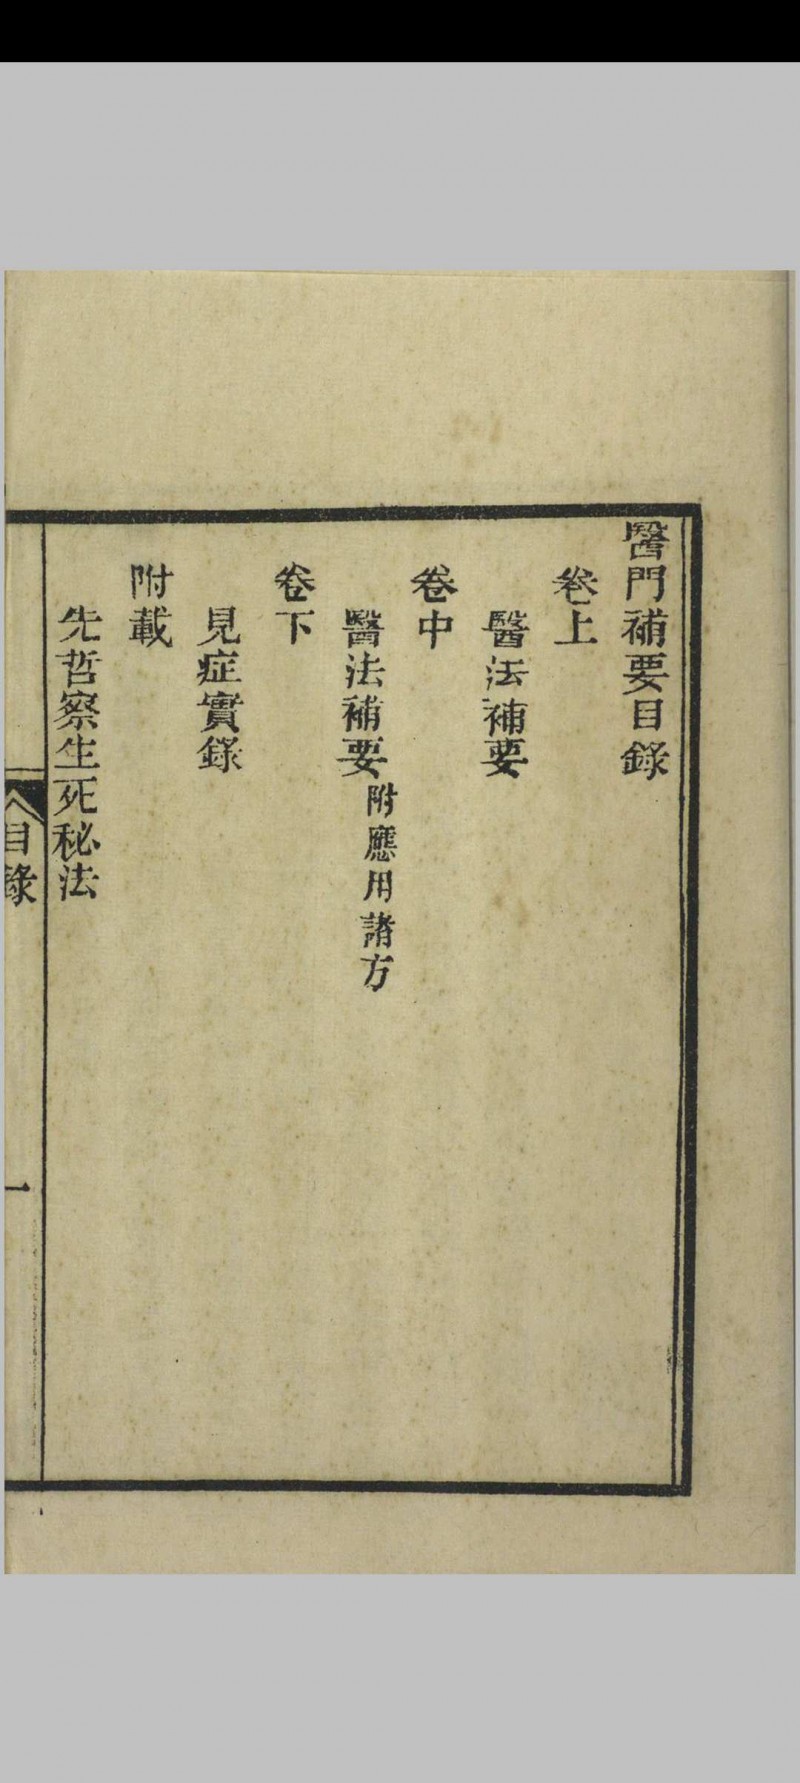 醫門補要目錄
卷上
醫法補要
卷中
醫法補要附應用諸方
卷下
見症實錄
附載
先哲察生死秘法
目錄
一